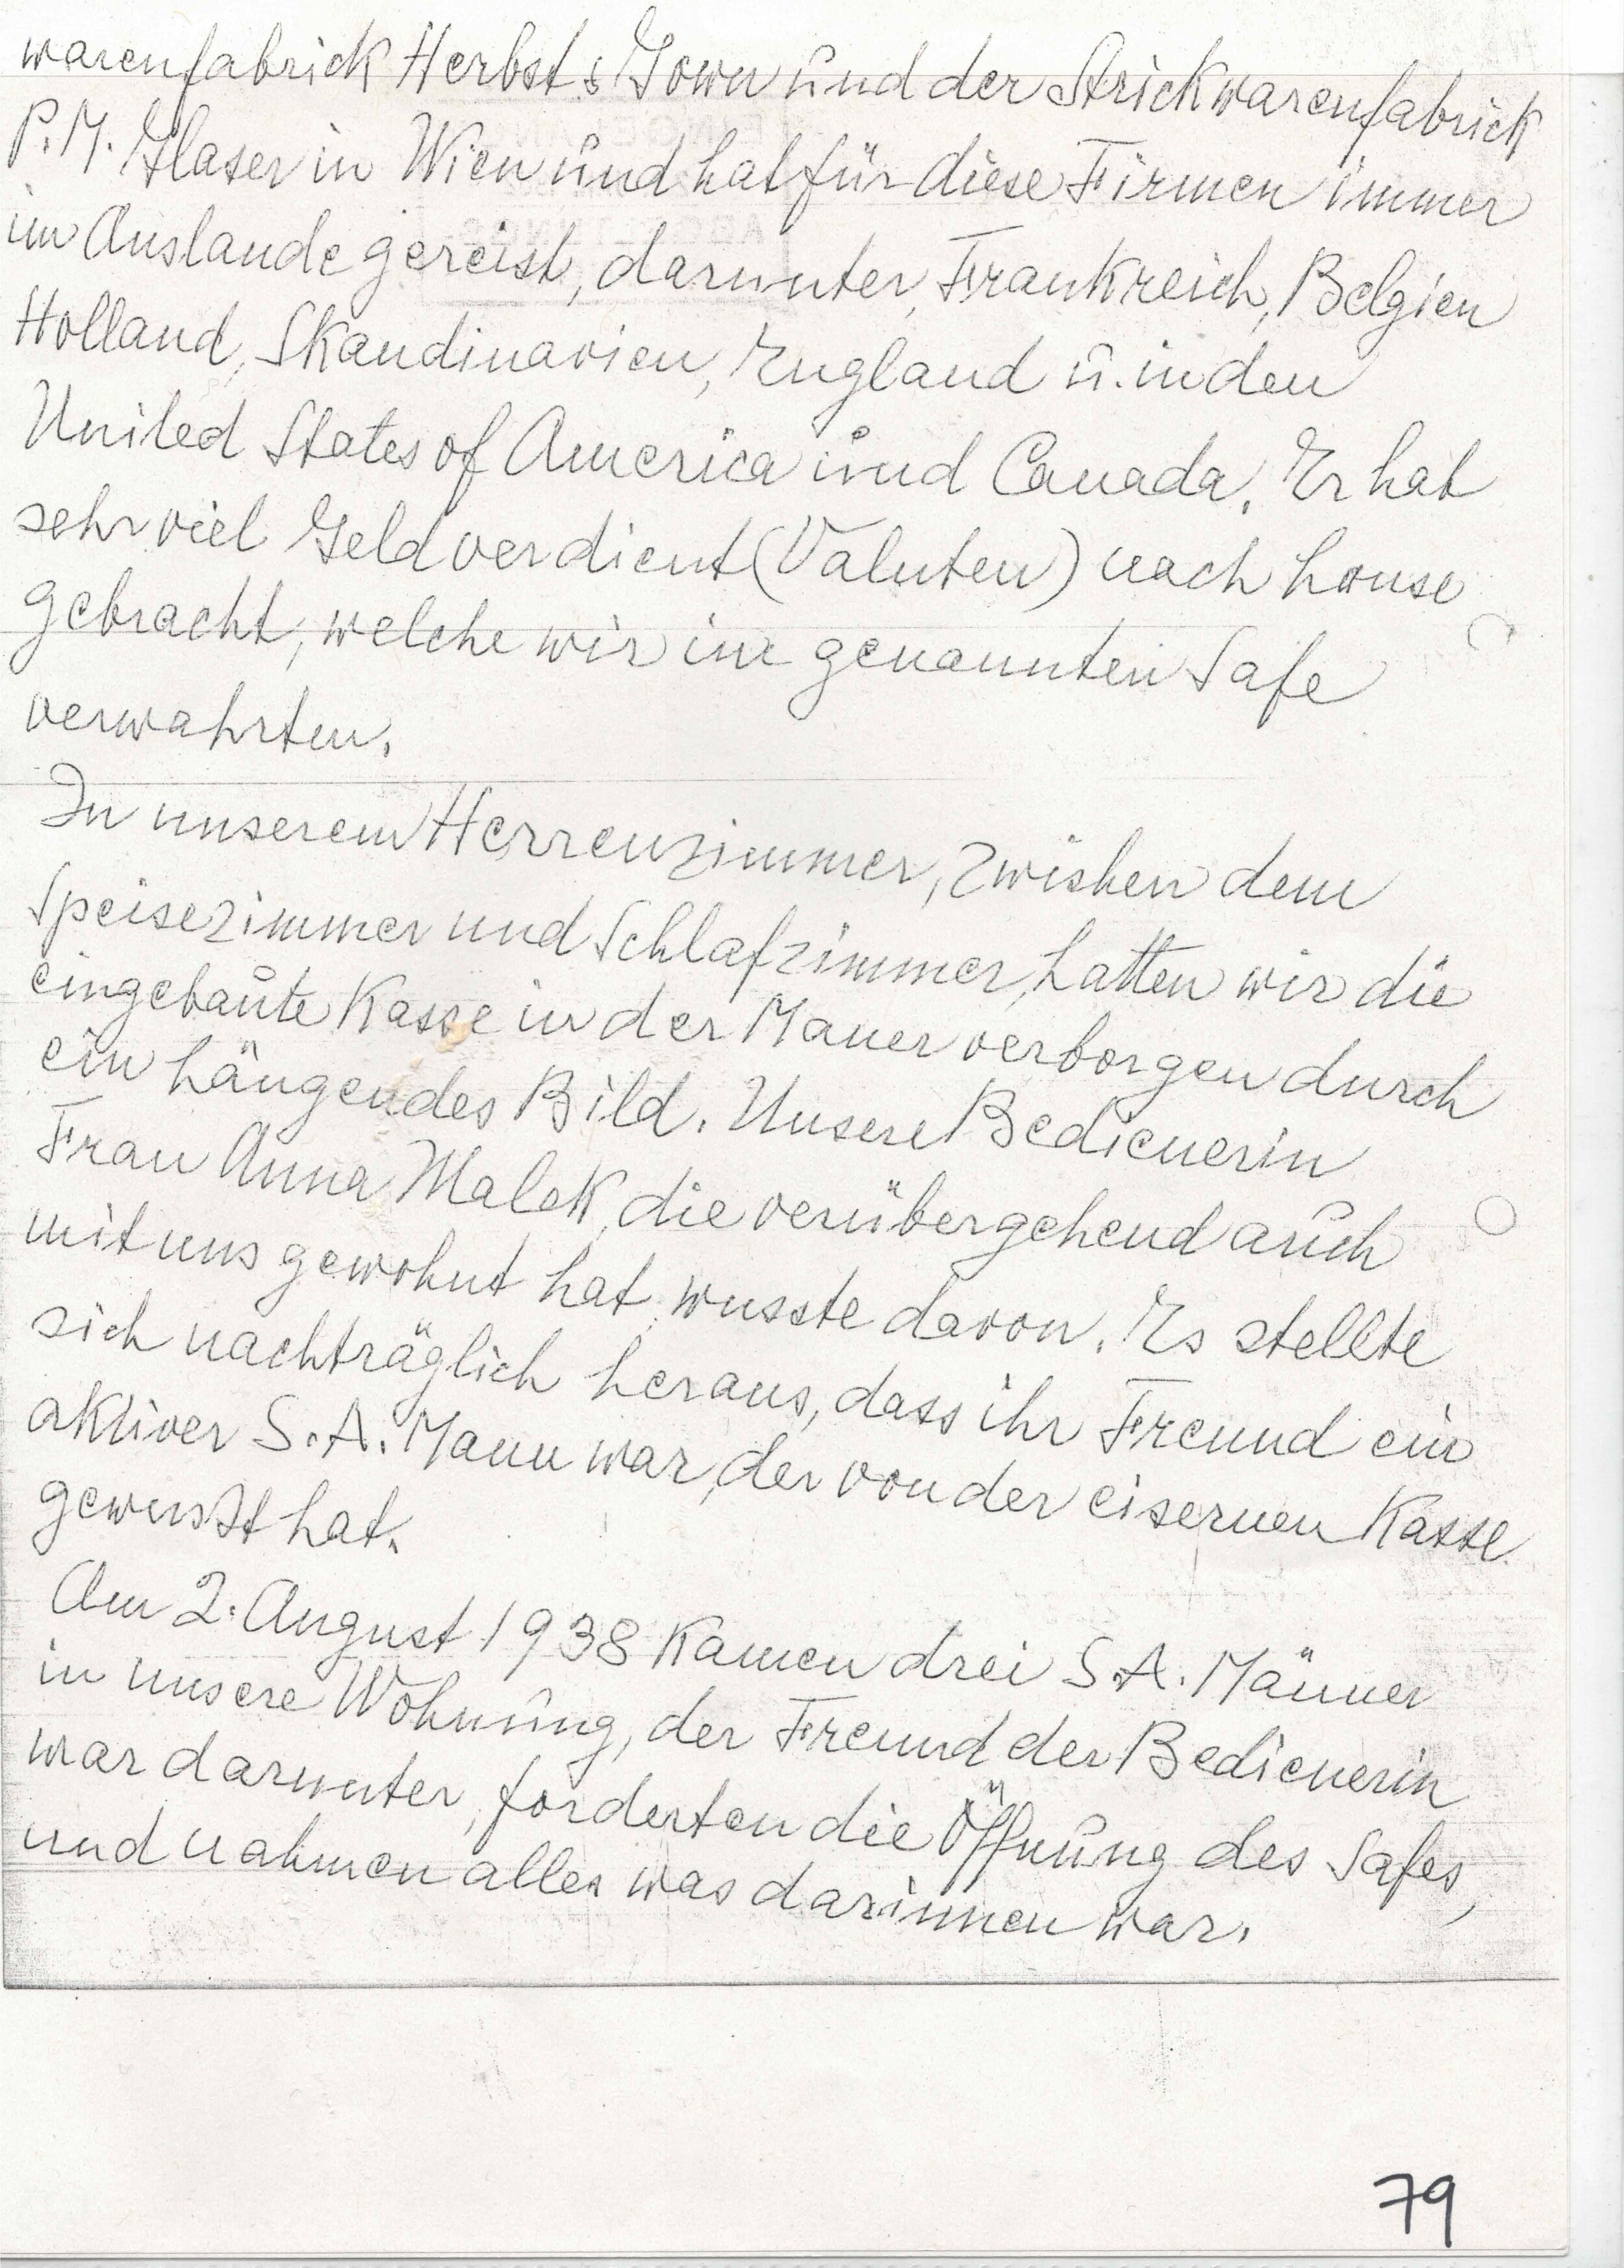 warenfabrick Herbst & Gown und der Strickwarenfabrick
P.M. Glaser in Wien und hat für diese Firmen immer
im Auslande gereist, darunter, Frankreich, Belgien
Holland, Skandinavien, England u. in den
United States of America und Canada. Er hat
sehr viel Geld verdient (Valuten) nach hause
gebracht, welche wir im genannten Safe
verwahrten.
In unserem Herrenzimmer, zwishen dem
Speisezimmer und Schlafzimmer, hatten wir die
eingebaute Kasse in der Mauer verborgen durch
ein hängendes Bild. Unsere Bedienerin
Frau Anna Malek, die verübergehend auch
mit uns gewohnt hat, wusste davon. Es stellte
sich nachträglich heraus, dass ihr Freund ein
aktiver S.A. Mann war, der von der eisernen Kasse
gewusst hat.
Am 2. August 1938 kamen drei S.A. Männer
in unsere Wohnung, der Freund der Bedienerin
war darunter, forderten die Öffnung des Safes,
und nahmen alles was darinnen war.
79